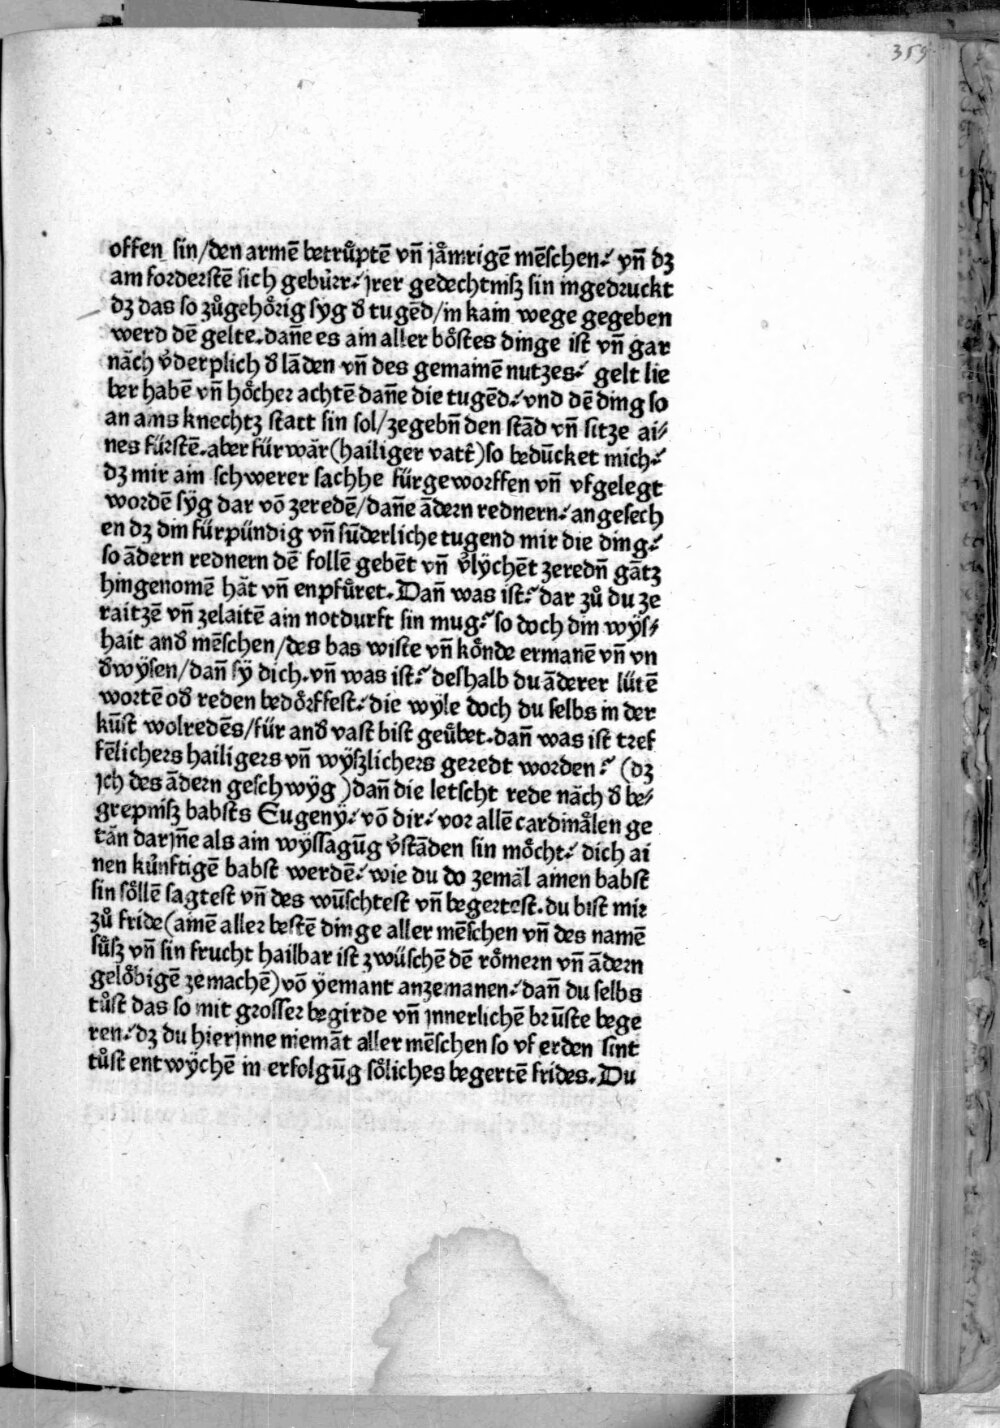 359
offen sin/den armē betruͤptē vn̄ jaͤmrigē mēschen⸗ vn̄ dz
am forderstē sich gebürr⸗ jrer gedechtnisz sin ingedruckt
dz das so zuͦgehoͤrig syg d̕ tugēd/in kain wege gegeben
werd dē gelte.dan̄e es ain aller boͤstes dinge ist vn̄ gar
naͤch v̕derplich d̕ lāden vn̄ des gemainē nutzes⸗ gelt lie
ber habē vn̄ hoͤcher achtē dan̄e die tugēd⸗ vnd dē ding so
an ains knechtz statt sin sol/zegebn̄ den stād vn̄ sitze ai⸗
nes fürstē.aber für war (hailiger vatt̕) so bedūcket mich⸗
dz mir ain schwerer sachhe fürgeworffen vn̄ vfgelegt
wordē syg dar vō zeredē/dan̄e ādern rednern⸗ angesech
en dz din fürpündig vn̄ sūderliche tugend mir die ding⸗
so ādern rednern dē follē gebēt vn̄ v̕lÿchēt zeredn̄ gātz
hingenomē hāt vn̄ enpfuͤret. Dan̄ was ist⸗ dar zuͦ du ze
raitzē vn̄ zelaitē ain notdurft sin mug⸗ so doch din wÿs⸗
hait and̕ mēschen/des bas wiste vn̄ koͤnde ermanē vn̄ vn
d̕wÿsen/dan̄ sÿ dich.vn̄ was ist⸗ deshalb du āderer lütē
wortē od̕ reden bedoͤrffest⸗ die wÿle doch du selbs in der
kūst wolredēs/für and̕ vast bist geuͤbet.dan̄ was ist tref
fēlichers hailigers vn̄ wÿszlichers geredt worden⸗ (dz
jch des ādern geschwÿg) dan̄ die letscht rede naͤch d̕ be⸗
grepnisz babsts Eugenÿ⸗ vō dir⸗ vor allē cardinaͤlen ge
tān darjn̄e als ain wÿssagūg v̕stāden sin moͤcht⸗ dich ai
nen künftigē babst werdē⸗ wie du do zemāl ainen babst
sin soͤllē sagtest vn̄ des wūschtest vn̄ begertest.du bist mir
zuͦ fride (ainē aller bestē dinge aller mēschen vn̄ des namē
suͤsz vn̄ sin frucht hailbar ist zwüschē dē roͤmern vn̄ ādern
geloͤbigē zemachē) vō ÿemant anzemanen⸗ dan̄ du selbs
tuͦst das so mit grosser begirde vn̄ jnnerlichē brūste bege
ren⸗ dz du hierjnne niemāt aller mēschen so vf erden sint
tuͦst entwÿchē in erfolgūg soͤliches begertē frides. Du